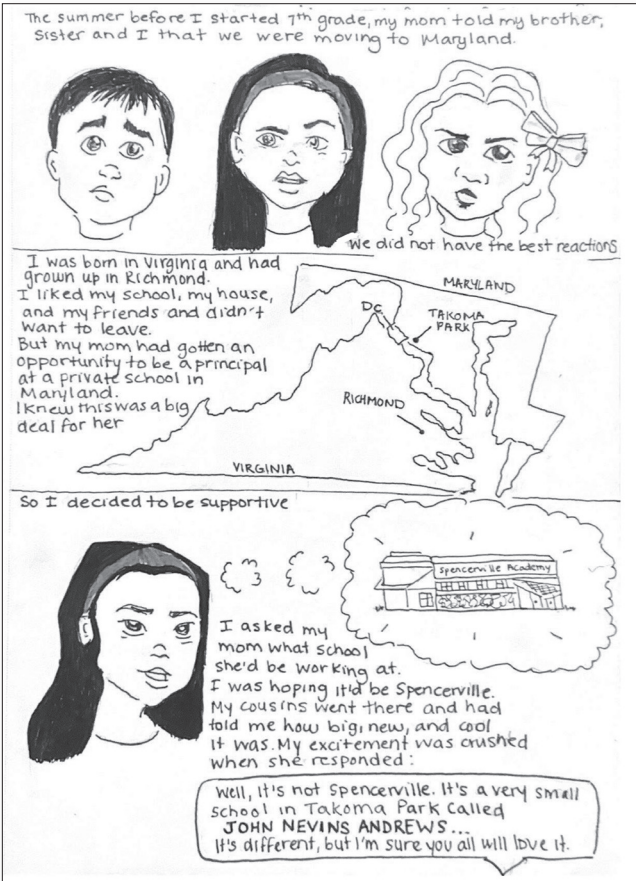 The summer before I started 7th grade, my mom told my brother,
sister and I that we were moving to Maryland.
We did not have the best reactions
I was born in Virginia and had
grown up in Richmond.
I liked my school, my house,
and my friends and didn't
want to leave.
But my mom had gotten an
opportunity to be a principal
at a private school in
Maryland.
I knew this was a big
deal for her
MARYLAND
DC
TAKOMA
PARK
RICHMOND
VIRGINIA
So I decided to be supportive
Spencerville Academy
I asked my
mom what school
she'd be working at.
I was hoping it'd be Spencerville.
My cousins went there and had
told me how big, new, and cool
it was. My excitement was crushed
when she responded:
Well, it's not Spencerville. It's a very small
school in Takoma Park called
JOHN NEVINS ANDREWS...
It's different, but I'm sure you all will love it.